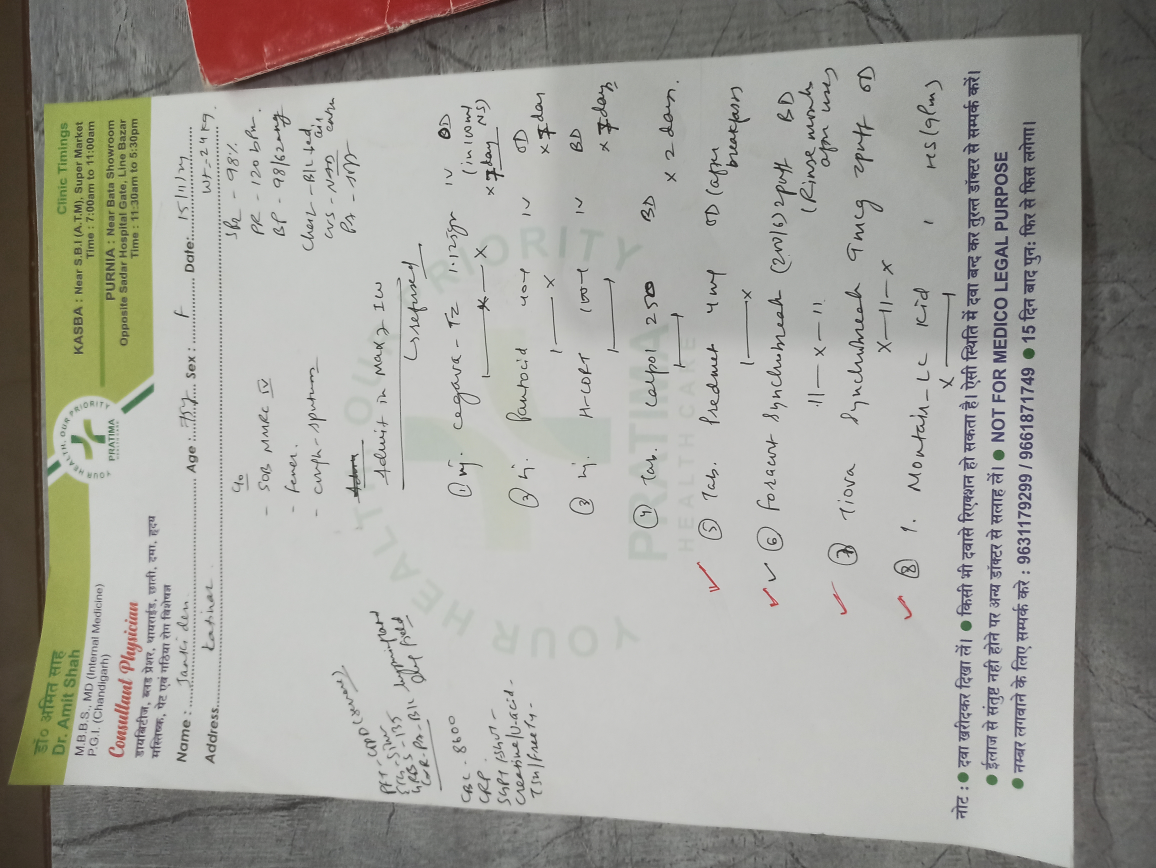 डा० अमित साह
Dr. Amit Shah
M.B.B.S., MD (Internal Medicine)
P.G.I. (Chandigarh)
Consultant Physician
डायबिटीज, ब्लड प्रेशर, थायराईड, छाती, दमा, हृदय
मस्तिष्क, पेट एवं गठिया रोग विशेषज्ञ
YOUR HEALTH, OUR PRIORITY
PRATIMA
Clinic Timings
KASBA : Near S.B.I (A.T.M), Super Market
Time : 7:00am to 11:00am
PURNIA : Near Bata Showroom
Opposite Sadar Hospital Gate, Line Bazar
Time : 11:30am to 5:30pm
Name : Janki devi Age : Sex : F Date: 15/11/24
Address Katihar Wt - 24 kg
SPO2 - 98%
PR - 120 bpm
BP - 98/62 mmHg
Chest - B/L
CVS -
PA - soft
c/o
- SOB MMRC IV
- Fever.
- cough - sputum
Admit in Male IW
refused
PFT - COPD (severe)
RBS - 155
CBC - 8600
CRP -
SGPT/SGOT -
Creatine/U-acid -
TSH/Free T4 -
① inj. Cegava - TZ 1.125gm IV BD
(in 100ml NS)
x 7 day
② inj. Pantocid 40mg IV OD
x 7 day
③ inj. H-CORT 100mg IV BD
x 7 day
④ Tab. Calpol 250 BD
x 2 day.
⑤ Tab. Predmet 4mg OD (after breakfast)
⑥ Foracort Synchrobreath (200/6) 2puff BD
(Rinse mouth after use)
⑦ Tiova Synchrobreath 9mcg 2puff OD
⑧ T. Montair-LC Kid 1 HS (9pm)
YOUR HEALTH OUR PRIORITY
PRATIMA
HEALTHCARE
नोट : ● दवा खरीदकर दिखा लें। ● किसी भी दवासे रिएक्शन हो सकता है। ऐसी स्थिति में दवा बन्द कर तुरन्त डॉक्टर से सम्पर्क करें।
● ईलाज से संतुष्ट नही होने पर अन्य डॉक्टर से सलाह लें। ● NOT FOR MEDICO LEGAL PURPOSE
● नम्बर लगवाने के लिए सम्पर्क करे : 9631179299 / 9661871749 ● 15 दिन बाद पुन: फिर से फिस लगेगा।